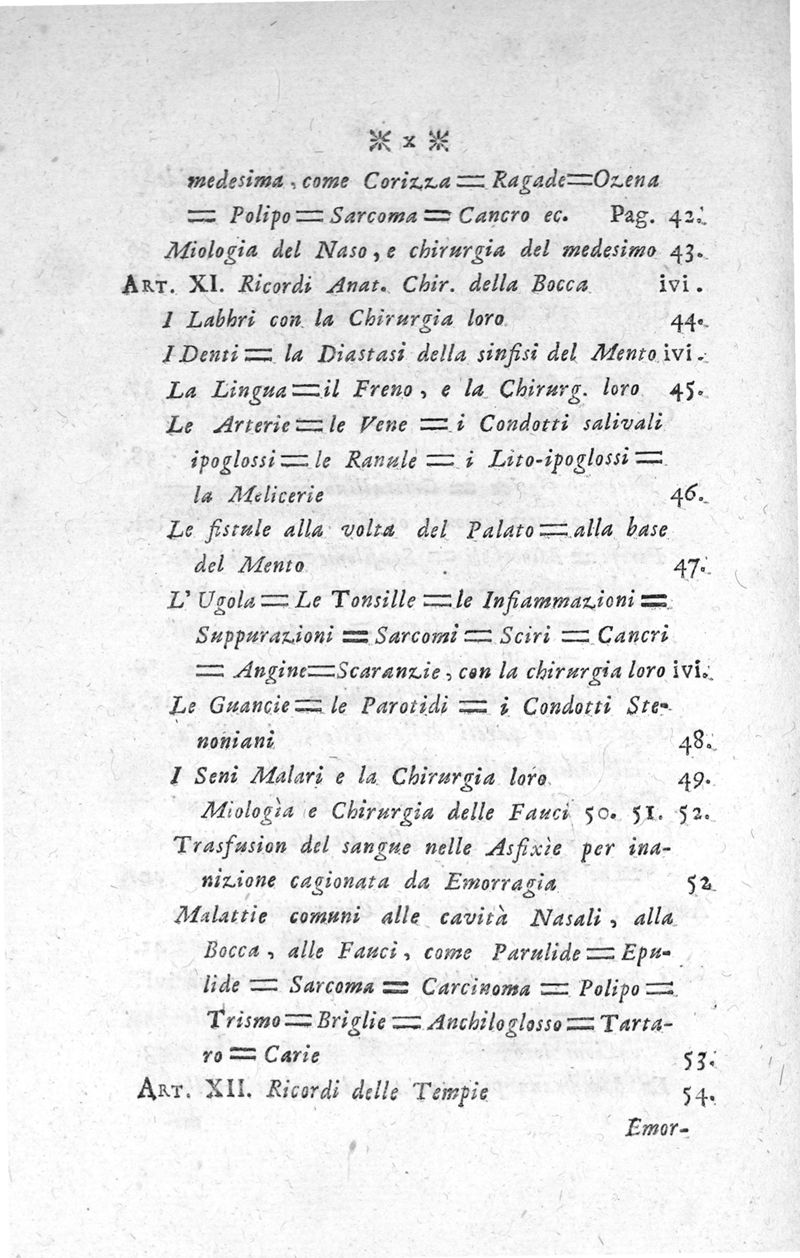 ※ x ※
medesima, come Corizza = Ragade = Ozena
= Polipo = Sarcoma = Cancro ec. Pag. 42.
Miologia del Naso, e chirurgia del medesimo 43.
ART. XI. Ricordi Anat. Chir. della Bocca ivi.
I Labbri con la Chirurgia loro 44.
I Denti = la Diastasi della sinfisi del Mento ivi.
La Lingua = il Freno, e la Chirurg. loro 45.
Le Arterie = le Vene = i Condotti salivali
ipoglossi = le Ranule = i Lito-ipoglossi =
la Melicerie 46.
Le fistule alla volta del Palato = alla base
del Mento 47.
L' Ugola = Le Tonsille = le Infiammazioni =
Suppurazioni = Sarcomi = Sciri = Cancri
= Angine = Scaranzie, con la chirurgia loro ivi.
Le Guancie = le Parotidi = i Condotti Ste-
noniani 48.
I Seni Malari e la Chirurgia loro 49.
Miologìa e Chirurgia delle Fauci 50. 51. 52.
Trasfusion del sangue nelle Asfixìe per ina-
nizione cagionata da Emorragia 52
Malattie comuni alle cavità Nasali, alla
Bocca, alle Fauci, come Parulide = Epu-
lide = Sarcoma = Carcinoma = Polipo =
Trismo = Briglie = Anchiloglosso = Tarta-
ro = Carie 53.
ART. XII. Ricordi delle Tempie 54.
Emor-